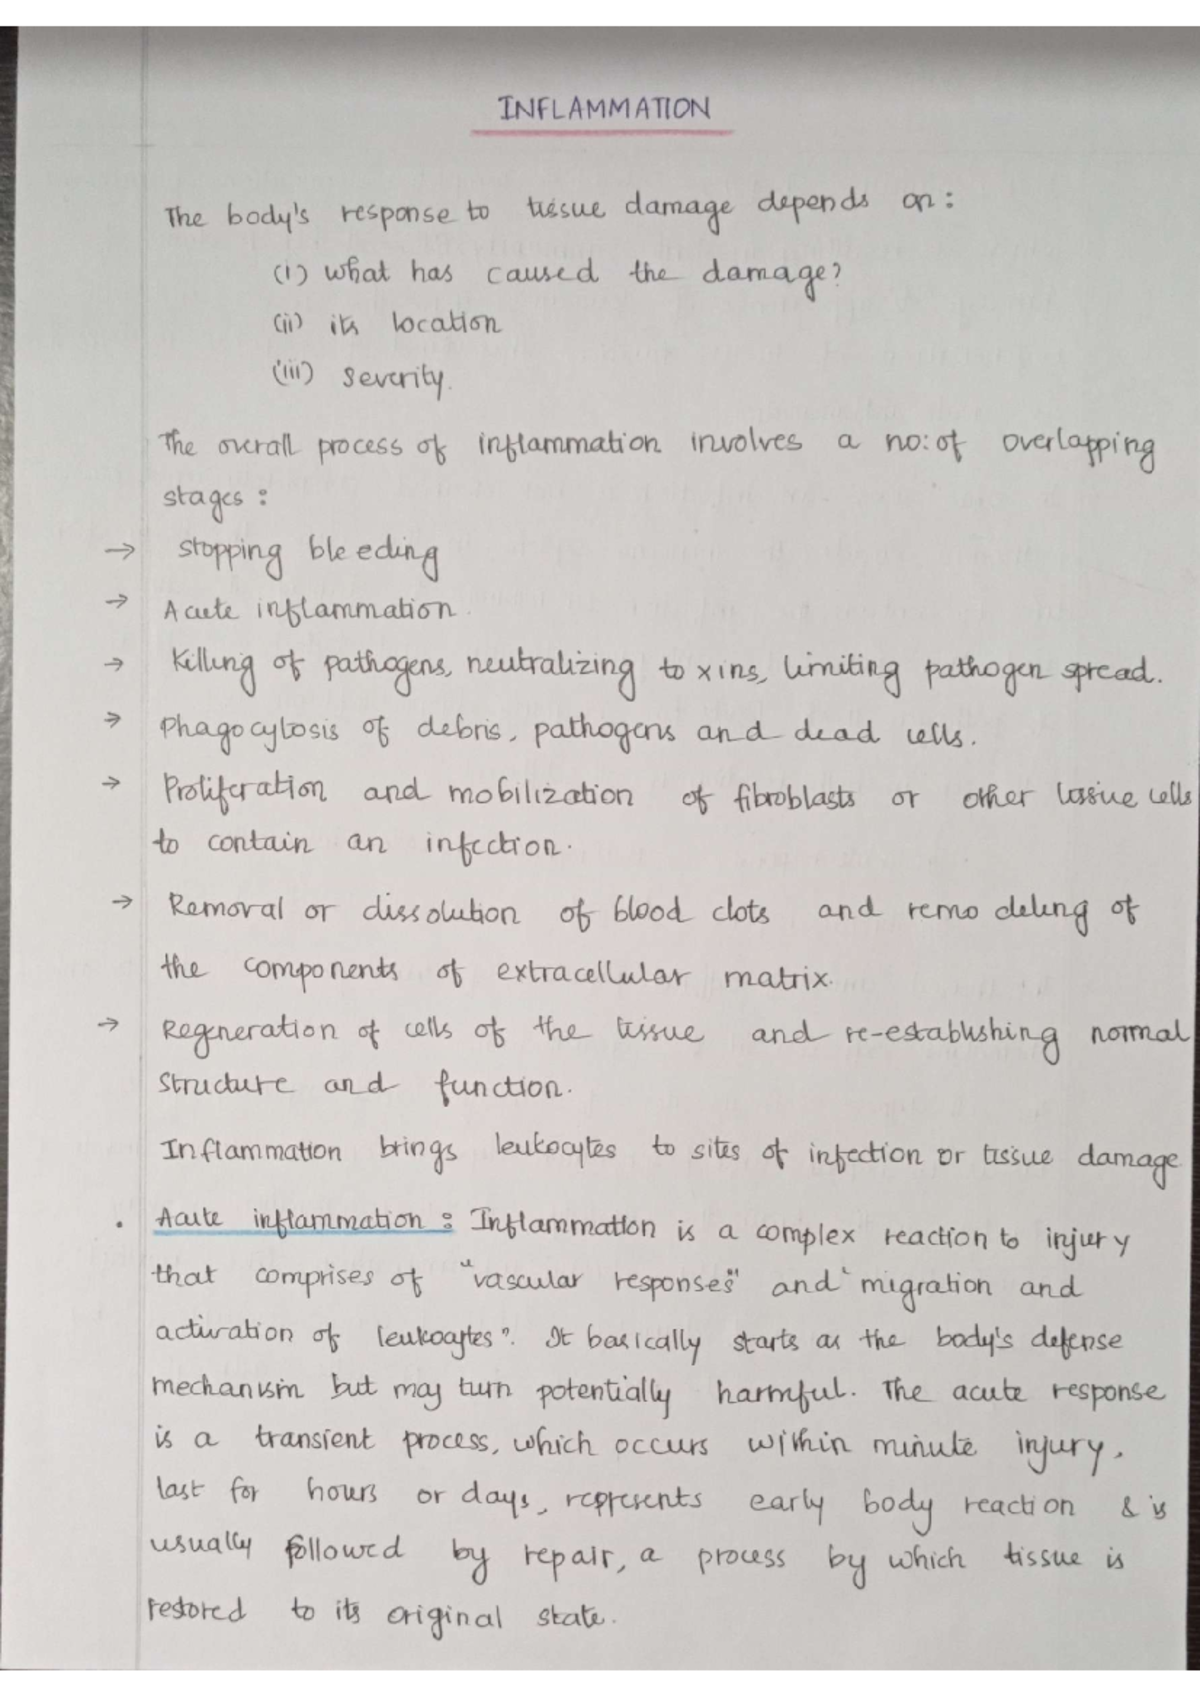 INFLAMMATION
The body's response to tissue damage depends on :
(i) what has caused the damage?
(ii) its location
(iii) severity.
The overall process of inflammation involves a no: of overlapping
stages :
→ stopping bleeding
→ Acute inflammation.
→ Killing of pathogens, neutralizing toxins, limiting pathogen spread.
→ Phagocytosis of debris, pathogens and dead cells.
→ Proliferation and mobilization of fibroblasts or other tissue cells
to contain an infection.
→ Removal or dissolution of blood clots and remodeling of
the components of extracellular matrix.
→ Regeneration of cells of the tissue and re-establishing normal
structure and function.
Inflammation brings leukocytes to sites of infection or tissue damage
• Acute inflammation : Inflammation is a complex reaction to injury
that comprises of "vascular responses" and "migration and
activation of leukocytes". It basically starts as the body's defense
mechanism but may turn potentially harmful. The acute response
is a transient process, which occurs within minute injury,
last for hours or days, represents early body reaction & is
usually followed by repair, a process by which tissue is
restored to its original state.